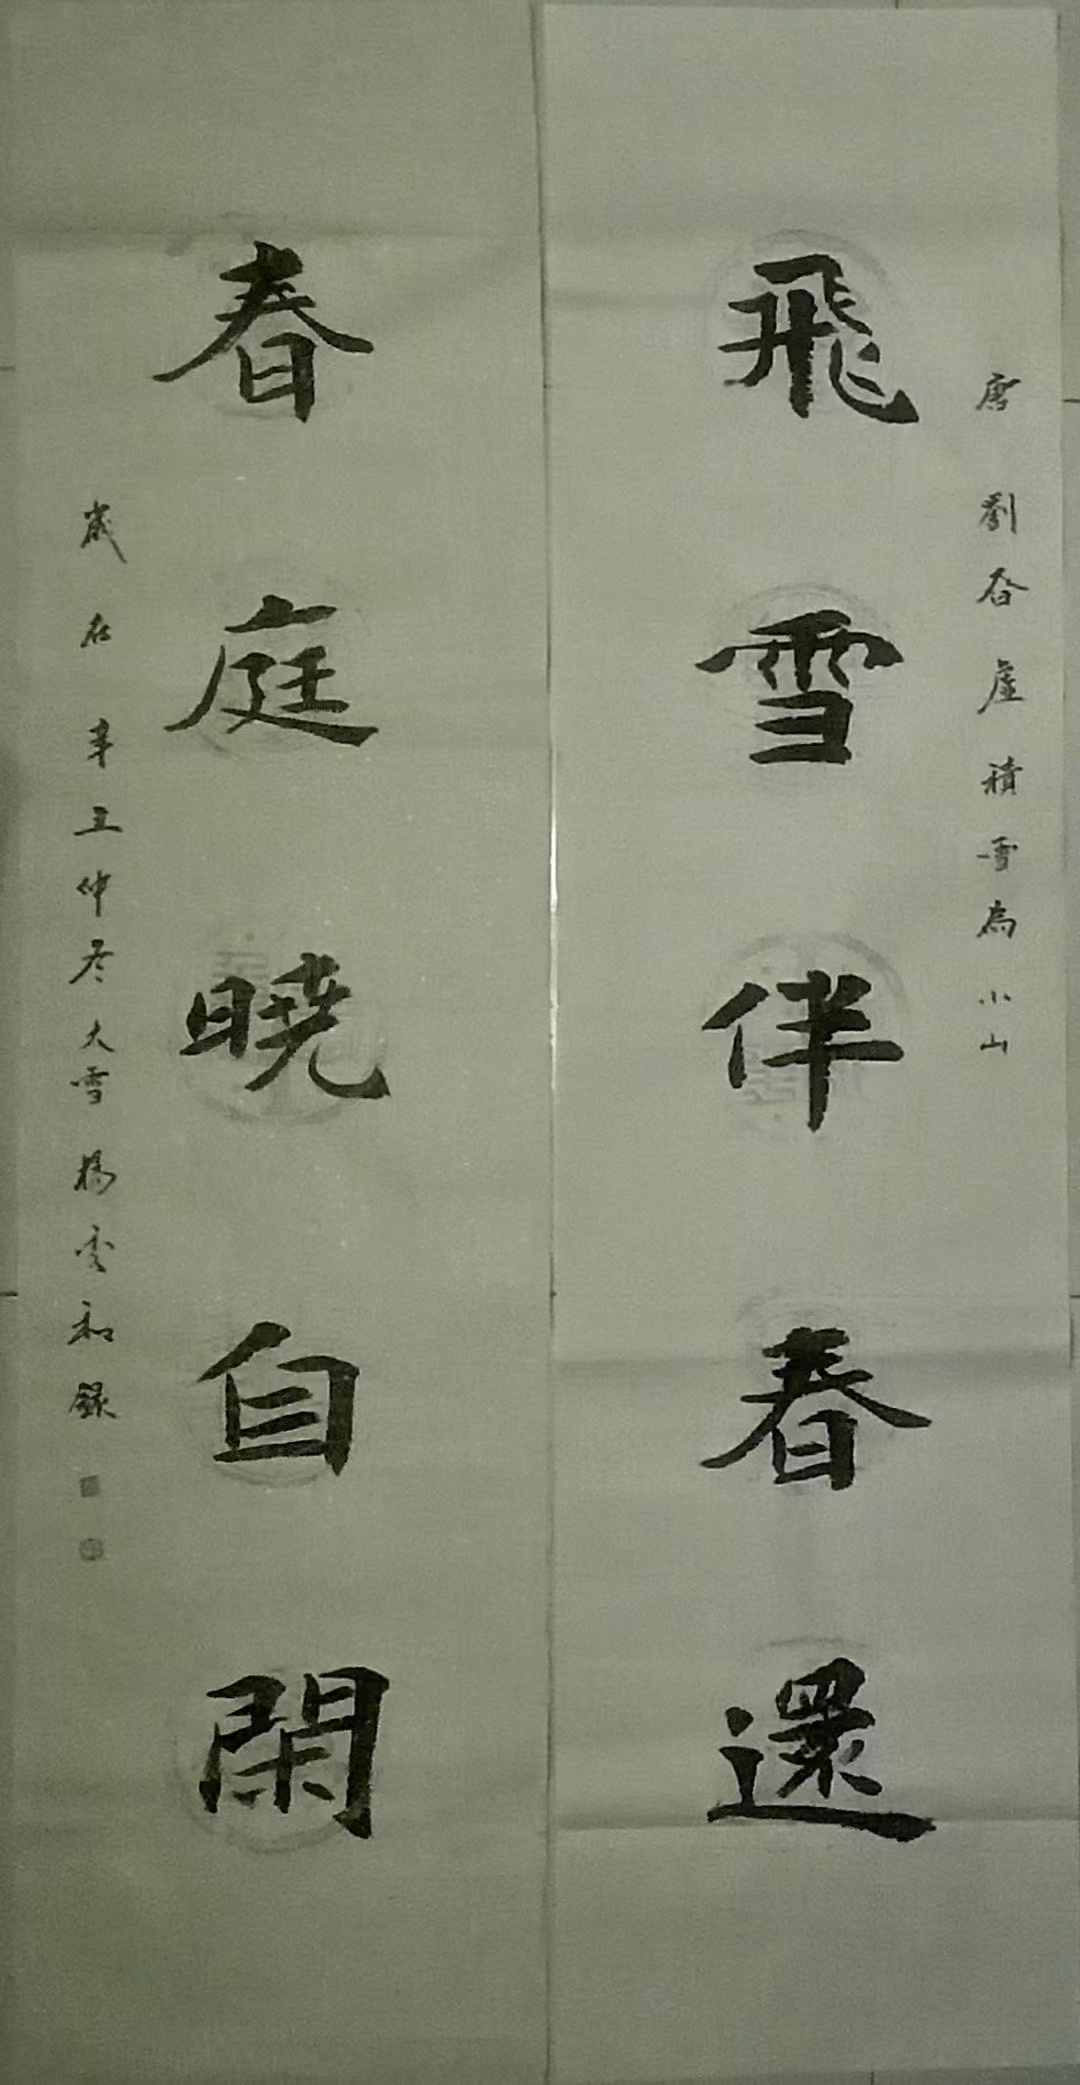 唐劉眘虛積雪為小山
飛雪伴春還
春庭曉自閑
歲在辛丑仲冬大雪楊雲和錄